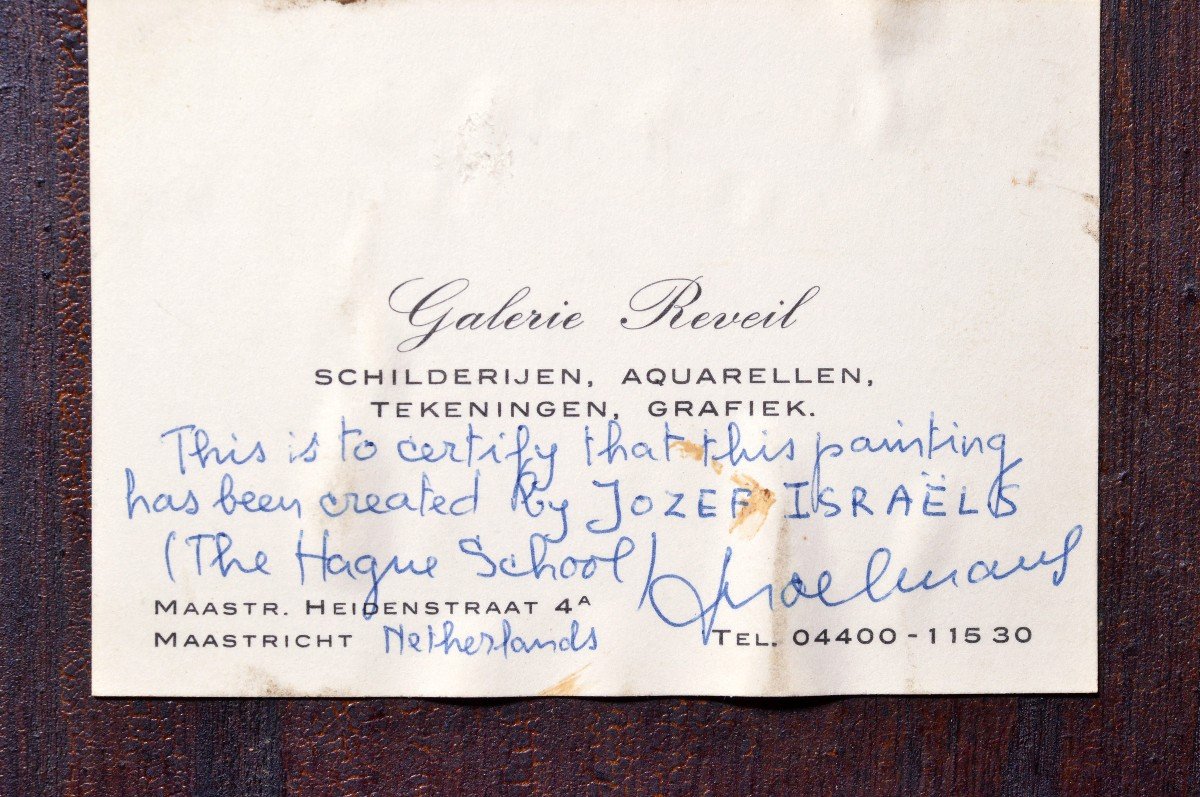 Galerie Reveil
SCHILDERIJEN, AQUARELLEN,
TEKENINGEN, GRAFIEK.
This is to certify that this painting
has been created by JOZEF ISRAËLS
(The Hague School)
MAASTR. HEIDENSTRAAT 4A
MAASTRICHT Netherlands
TEL. 04400-11530